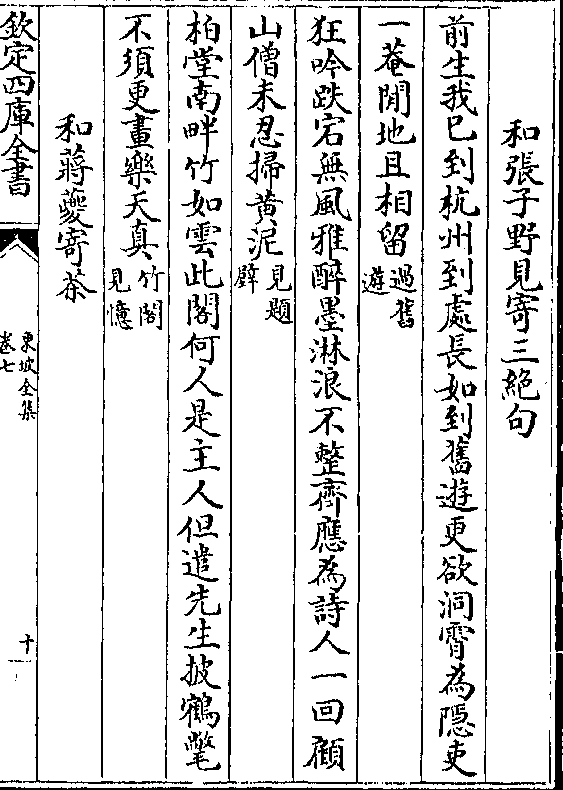 和張子野見寄三絕句
前生我已到杭州到處長如到舊遊更欲洞霄為隱吏
一菴閒地且相留過舊遊
狂吟跌宕無風雅醉墨淋浪不整齊應為詩人一回顧
山僧未忍掃黄泥見題壁
柏堂南畔竹如雲此閣何人是主人但遣先生披鶴氅
不須更畫樂天真竹閣見憶
和蔣夔寄茶
欽定四庫全書
東坡全集
卷七
十